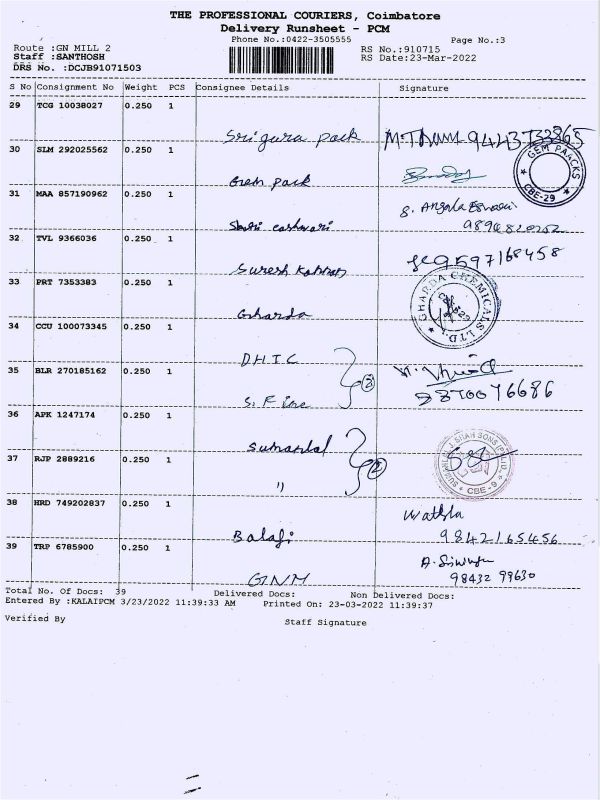 THE PROFESSIONAL COURIERS, Coimbatore
Delivery Runsheet - PCM
Phone No.:0422-3505555
Page No.:3
Route :GN MILL 2
RS No.:910715
Staff :SANTHOSH
RS Date:23-Mar-2022
DRS No. :DCJB91071503
S No Consignment No Weight PCS Consignee Details Signature
29 TCG 10038027 0.250 1
Sri guru pack
30 SLM 292025562 0.250 1
GEM PAACKS
CBE-29
Gem pack
31 MAA 857190962 0.250 1
S.
32 TVL 9366036 0.250 1
9597168458
Suresh
33 PRT 7353383 0.250 1
GHARDA CHEMICALS LTD.
Gharda
34 CCU 100073345 0.250 1
DHTC
35 BLR 270185162 0.250 1
S. Fine
36 APK 1247174 0.250 1
Sumantal
SHAH SONS
CBE-9
37 RJP 2889216 0.250 1
"
38 HRD 749202837 0.250 1
Balaji 9842165456
39 TRP 6785900 0.250 1
GNM 98432 99630
Total No. Of Docs: 39 Delivered Docs: Non Delivered Docs:
Entered By :KALAIPCM 3/23/2022 11:39:33 AM Printed On: 23-03-2022 11:39:37
Verified By
Staff Signature